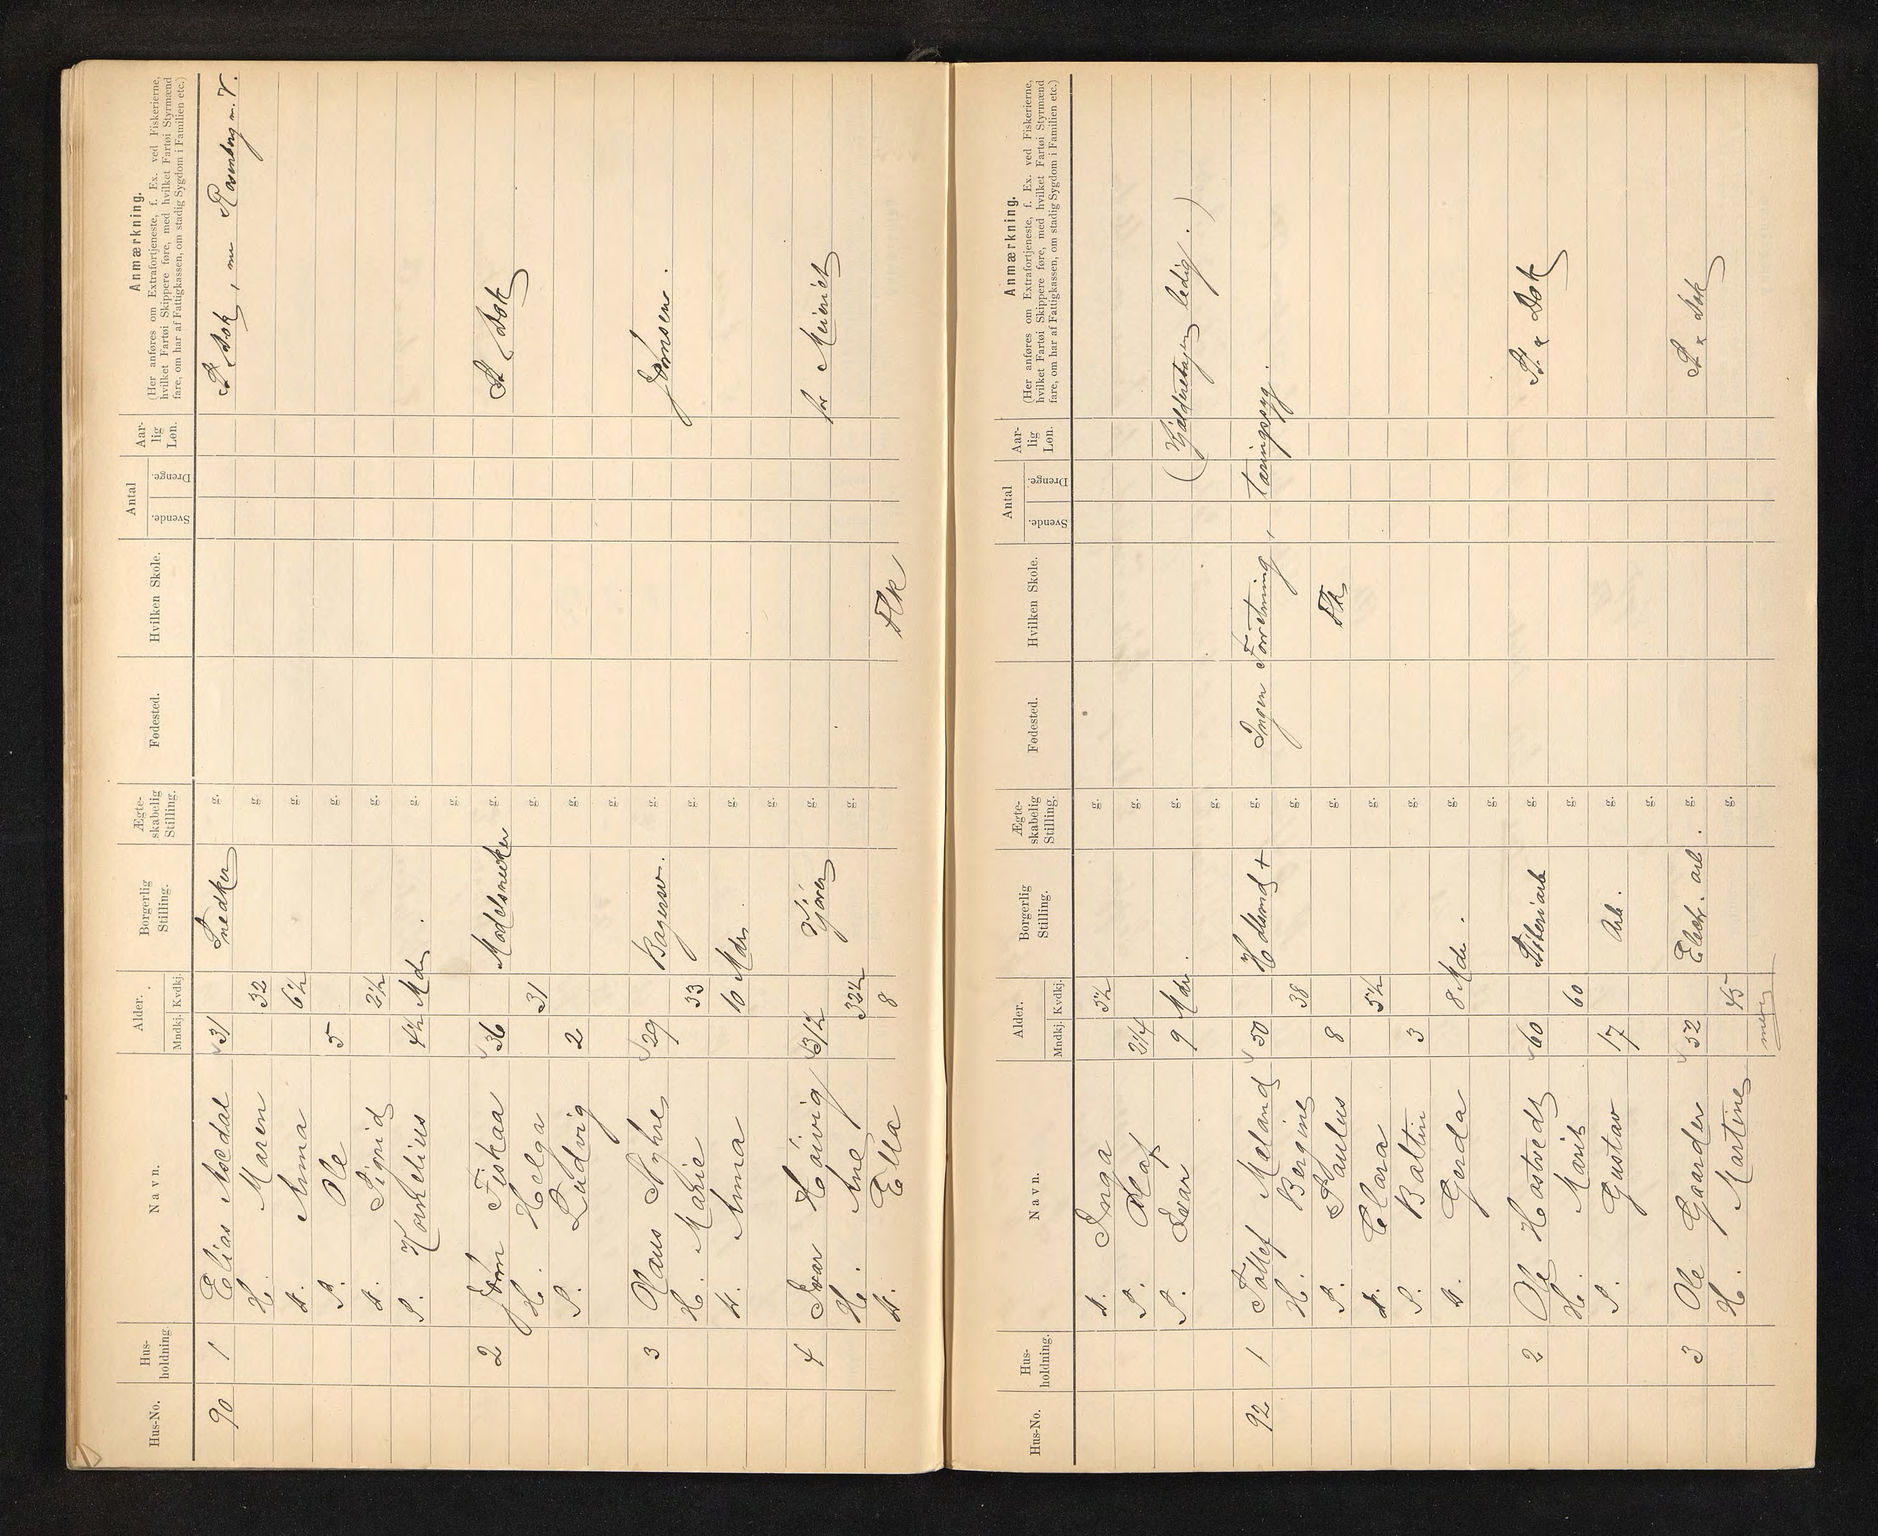 Hus-No. Hus-holdning. Navn. Alder. Mndkj. Kvdkj. Borgerlig Stilling. Ægte-skabelig Stilling. Fødested. Hvilken Skole. Antal Svende. Drenge. Aar-lig Løn. Anmærkning.
(Her anføres om Extrafortjeneste, f. Ex. ved Fiskerierne,
hvilket Fartøi Skippere føre, med hvilket Fartøi Styrmænd
fare, om har af Fattigkassen, om stadig Sygdom i Familien etc.)
90 1 Elias Aasedal 31 Snedker g. St & Dok, nu Rosenberg m. V.
H. Maren 32 g.
D. Anna 6½ g.
S. Ole 5 g.
D. Sigrid 2½ g.
S. Kornelius 4½ Mdr. g.
g.
2 John Fiskaa 36 Modelsnedker g. St & Dok
H. Helga 31 g.
S. Ludvig 2 g.
g.
3 Olaus Nyhre 29 Bagersv. g. Johnsen.
H. Marie 33 g.
D. Anna 10 Mdr. g.
g.
4 Ivar Høivig 31½ Kjører g. for Meieriet
H. Ane 32½ g.
D. Ella 8 Flk
Hus-No. Hus-holdning. Navn. Alder. Mndkj. Kvdkj. Borgerlig Stilling. Ægte-skabelig Stilling. Fødested. Hvilken Skole. Antal Svende. Drenge. Aar-lig Løn. Anmærkning.
(Her anføres om Extrafortjeneste, f. Ex. ved Fiskerierne,
hvilket Fartøi Skippere føre, med hvilket Fartøi Styrmænd
fare, om har af Fattigkassen, om stadig Sygdom i Familien etc.)
D. Inga 5½ g.
S. Olaf 2¼ g.
S. Ivar 9 Mdr. g. (Kjælderetagen ledig.)
g.
92 1 Tollef Meland 50 g. Ingen Forretning, tæringssyg.
H. Bergine 38 g.
S. Paulus 8 g. Flk
D. Clara 5½ g.
S. Baltin 3 g.
D. Gerda 8 Mdr. g.
g.
2 Ole Hastvedt 60 Støberiarb g. St. & Dok
H. Marit 60 g.
S. Gustav 17 Arb. g.
g.
3 Ole Gaarder 52 Elektr. arb. g. St & Dok
H. Martine 45 g.